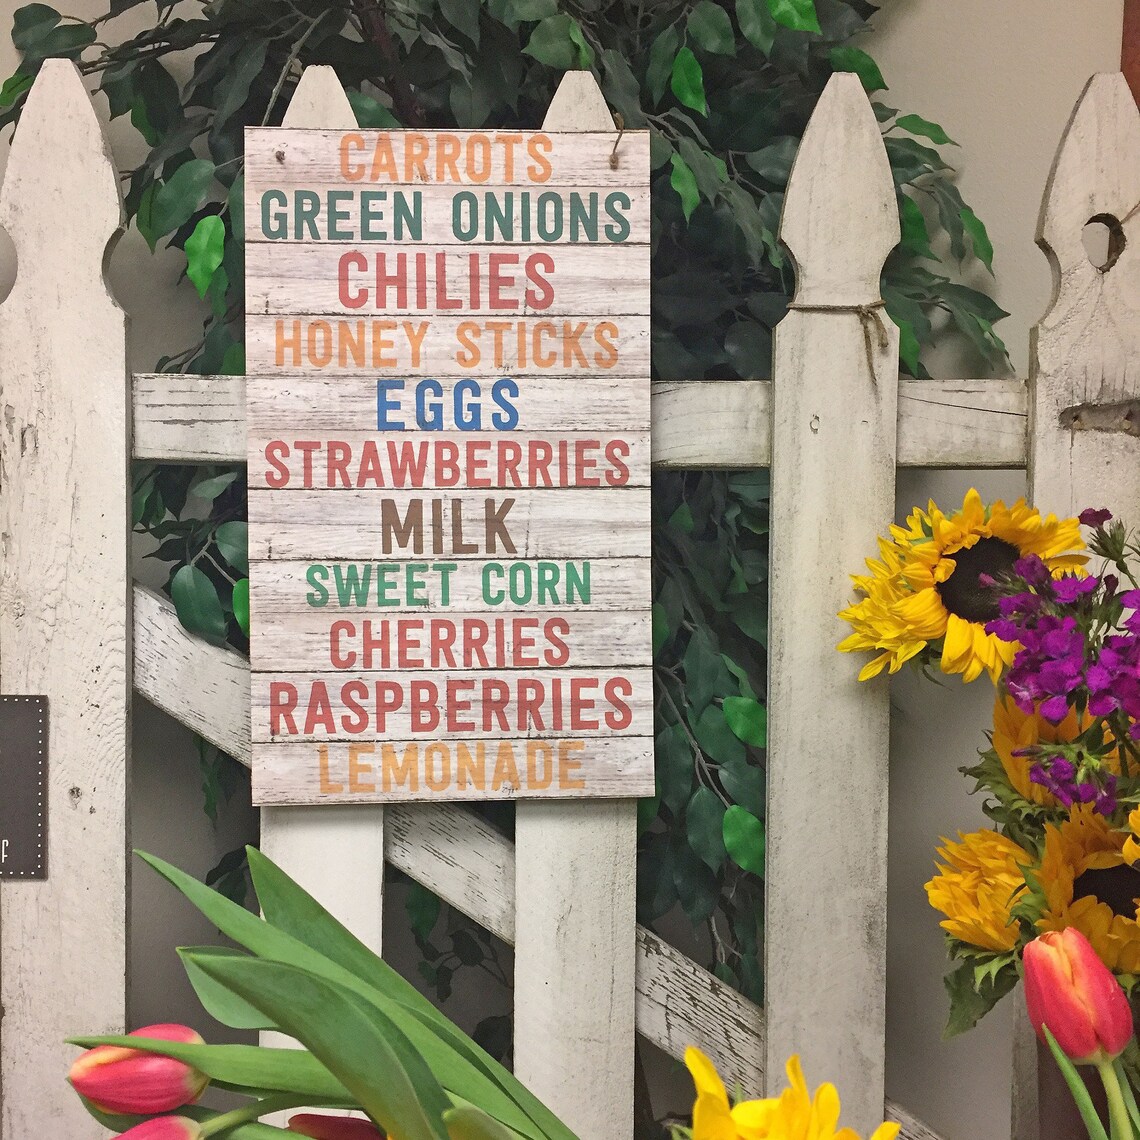 CARROTS
GREEN ONIONS
CHILIES
HONEY STICKS
EGGS
STRAWBERRIES
MILK
SWEET CORN
CHERRIES
RASPBERRIES
LEMONADE